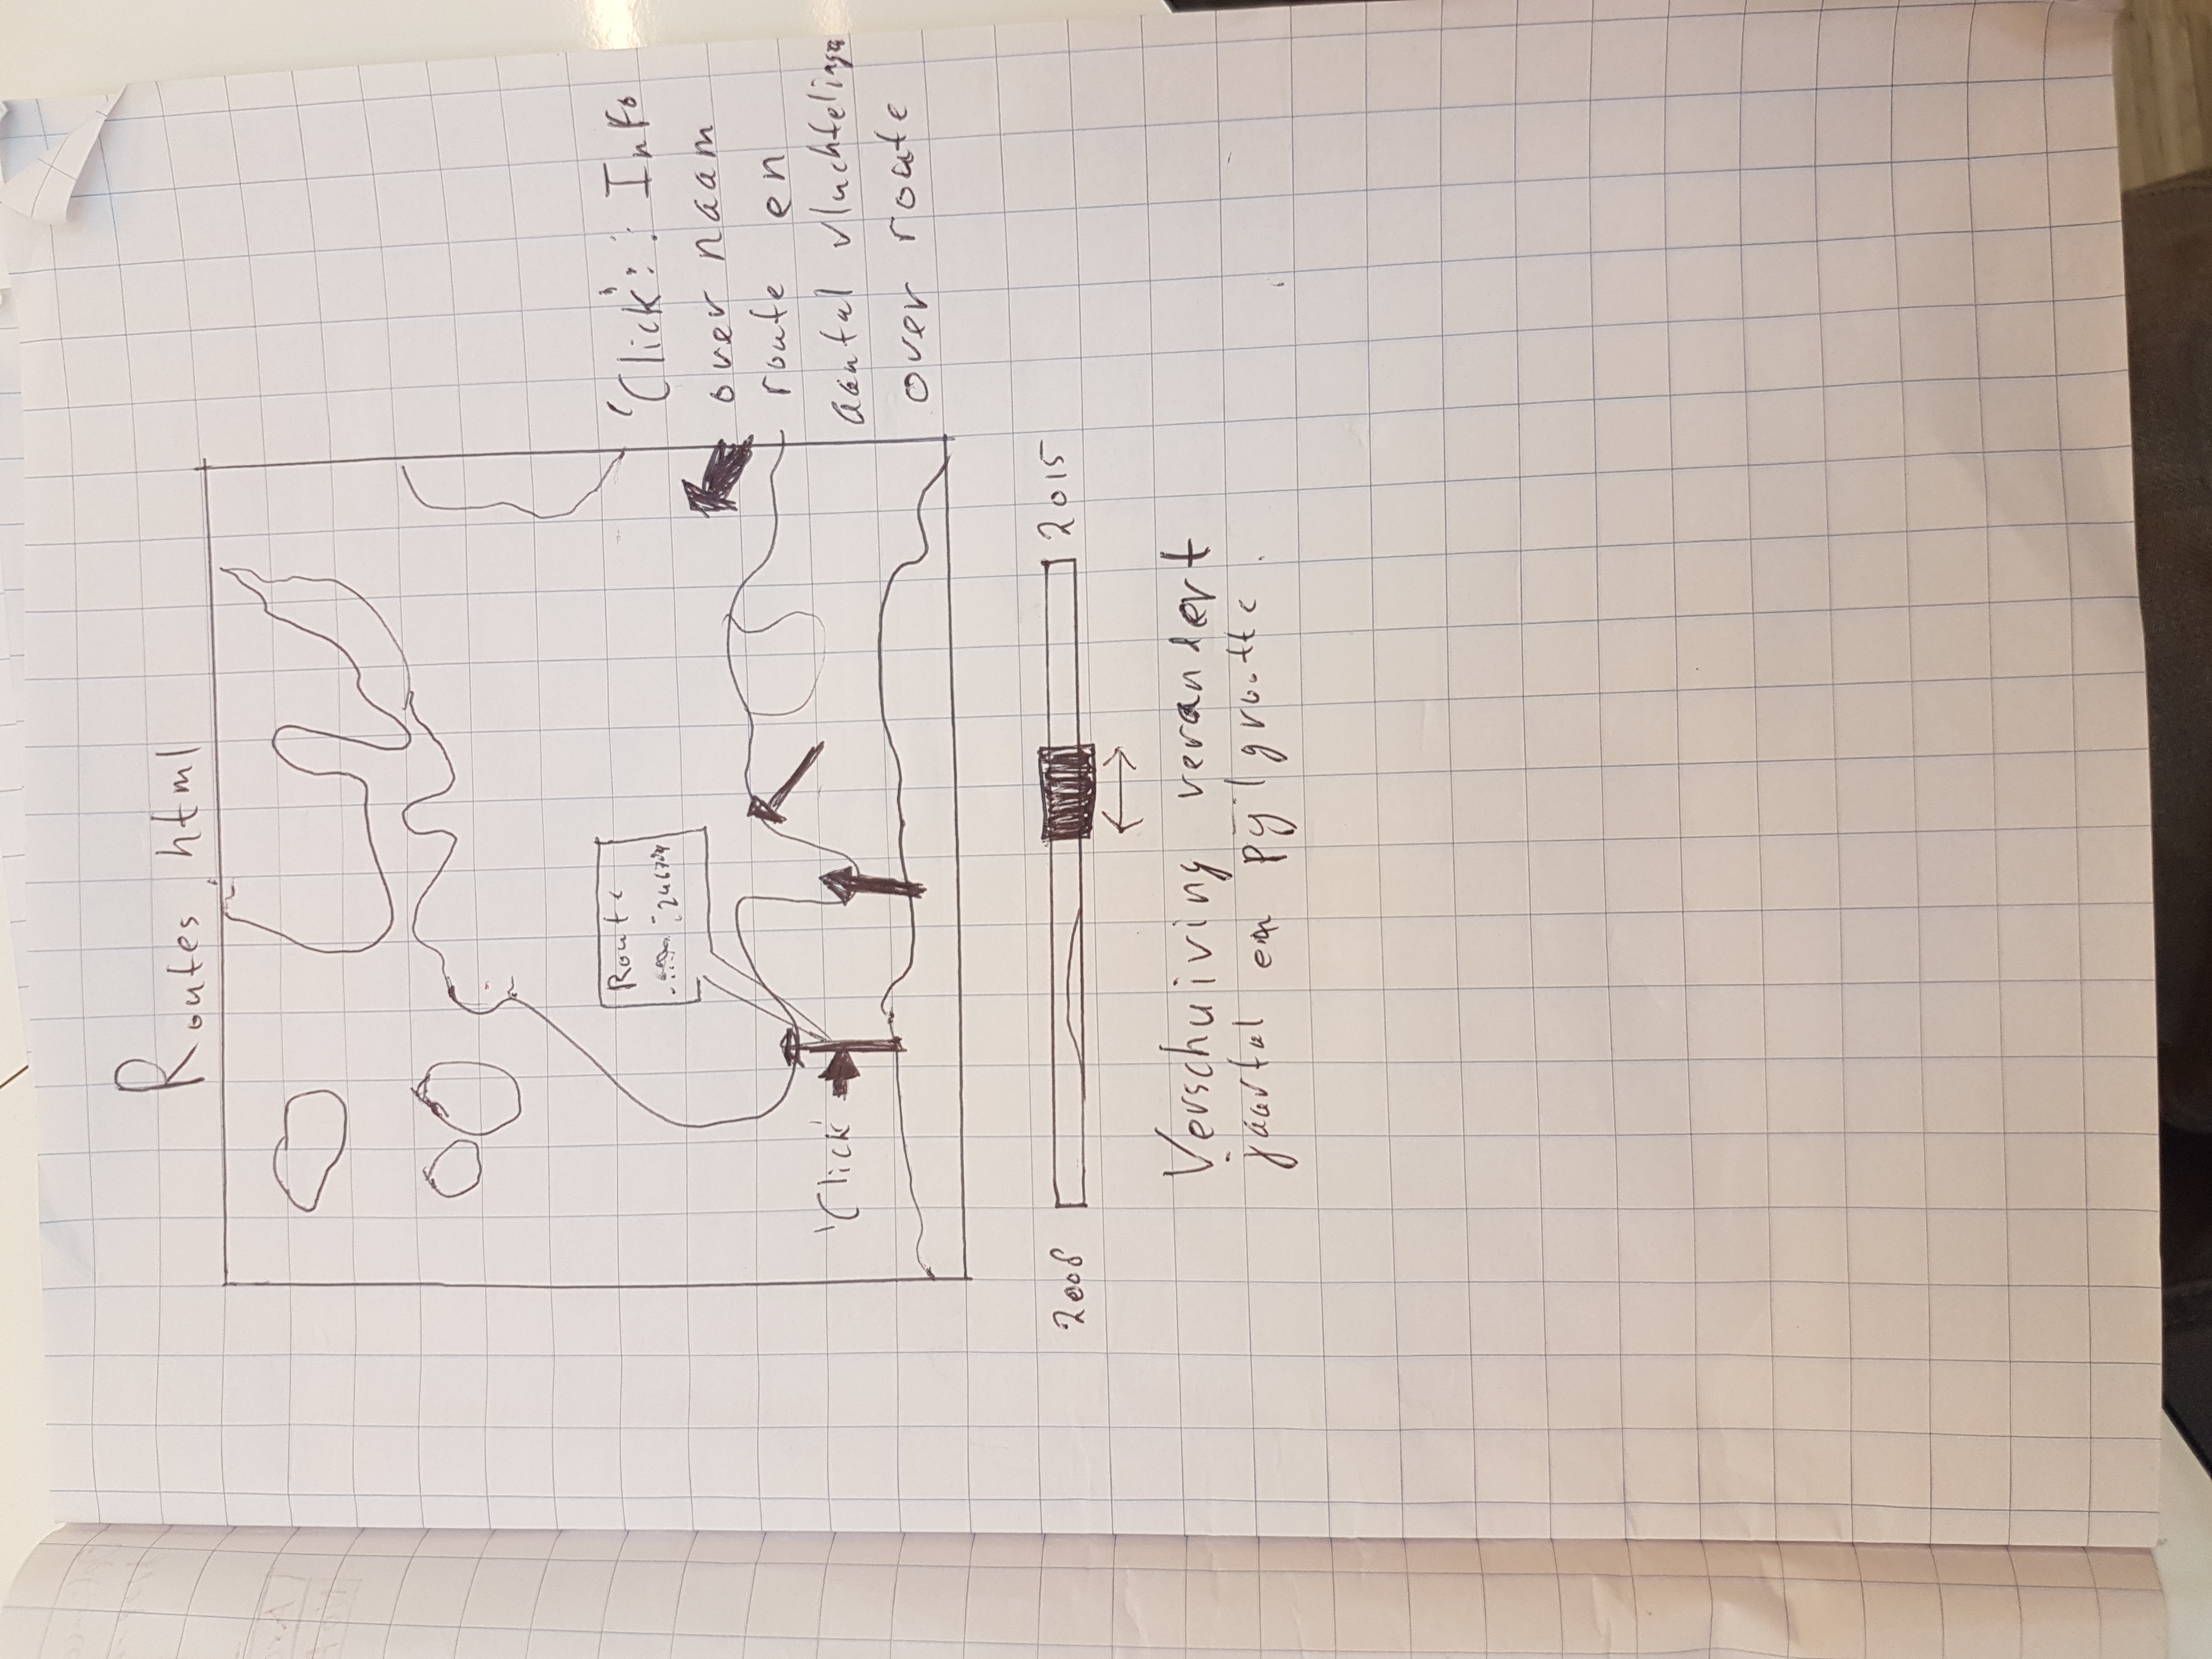 Routes.html
Route
'Click'
'Click': Info
over naam
route en
aantal vluchtelingen
over route
2008
2015
Verschuiving verandert
jaartal en pijlgrootte.